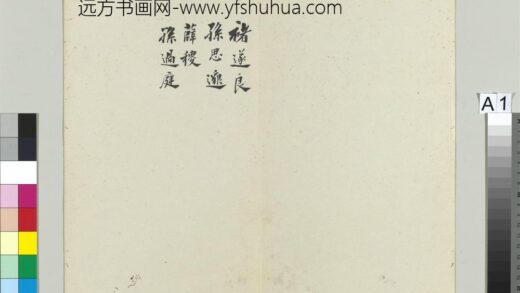 远方书画网-www.yfshuhua.com
褚遂良
孫思邈
薛稷
孫過庭
A1